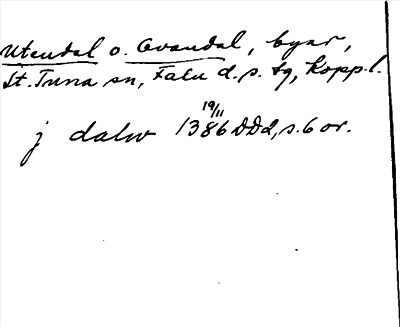 Utendal o. Ovandal, byar,
St. Tuna sn, Falu d. s. tg, Kopp. l.
19/11
j dalw 1386 DD2, s. 6 or.